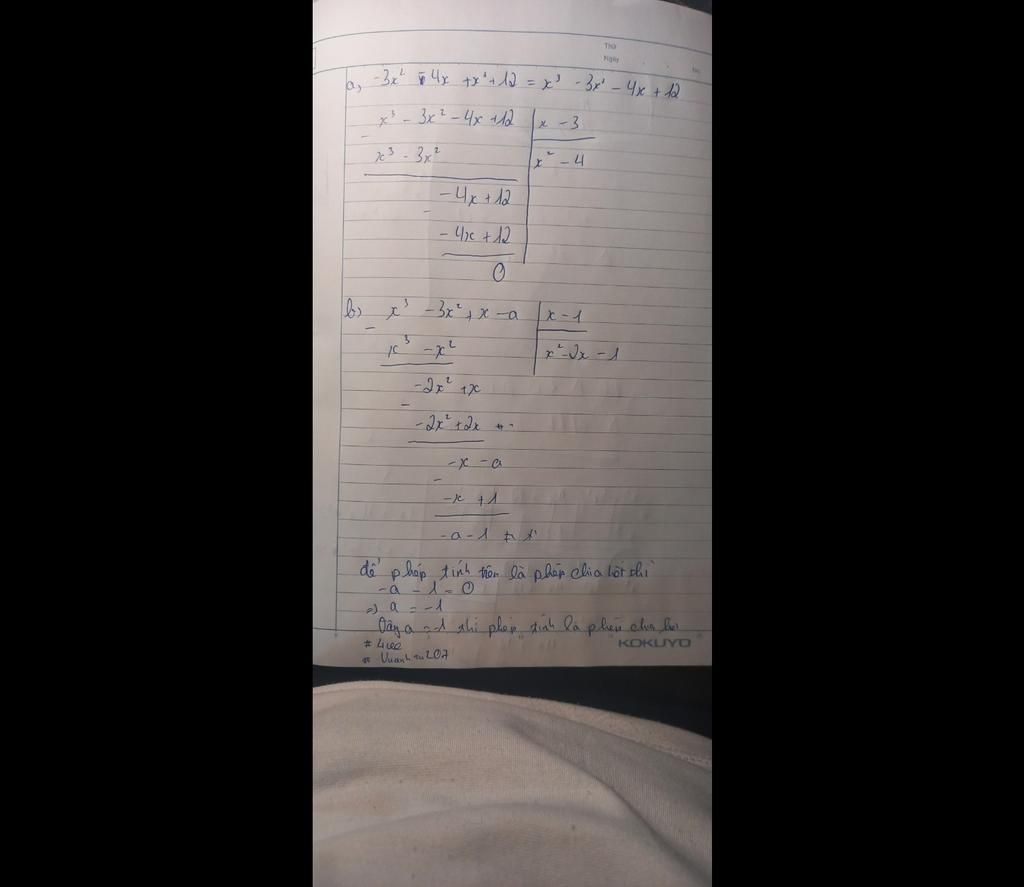 Thứ
Ngày
a, -3x² - 4x + x³ + 12 = x³ - 3x² - 4x + 12
x³ - 3x² - 4x + 12 | x - 3
-
x³ - 3x² | x² - 4
-4x + 12
-
-4x + 12
0
b) x³ - 3x² + x - a | x - 1
-
x³ - x² | x² - 2x - 1
-2x² + x
-
-2x² + 2x
-x - a
-
-x + 1
-a - 1
để phép tính trên là phép chia hết thì
-a - 1 = 0
=> a = -1
Vậy a = -1 thì phép tính là phép chia hết
KOKUYO